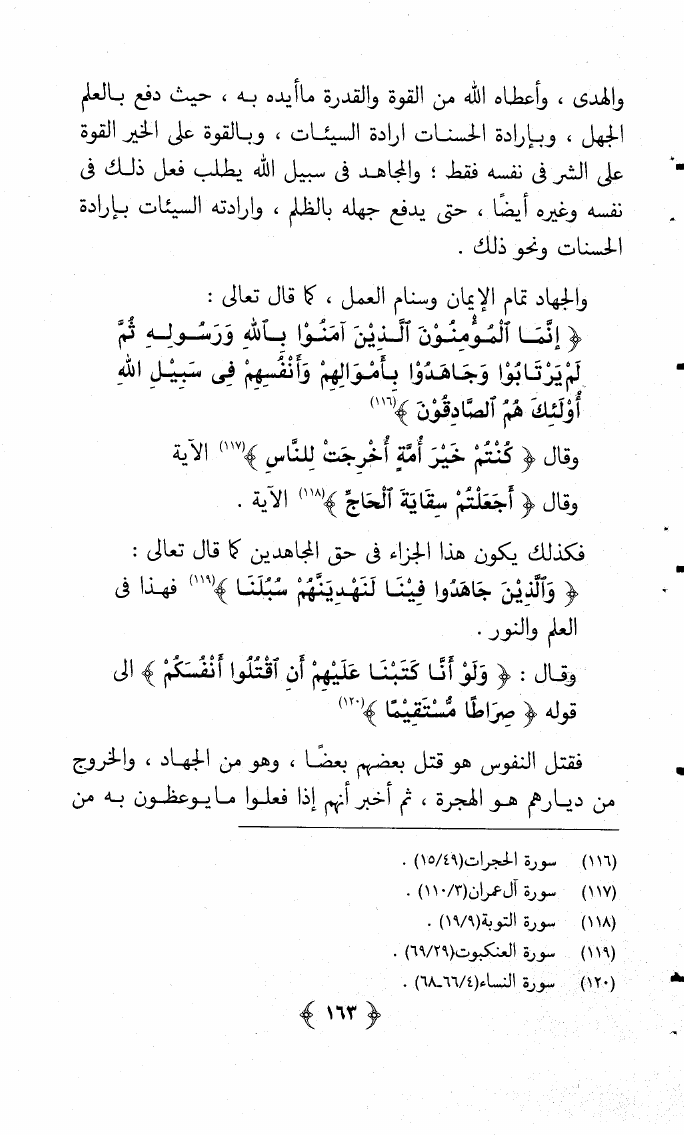 والهدى ، وأعطاه الله من القوة والقدرة ماأيده به ، حيث دفع بالعلم
الجهل ، وبإرادة الحسنات ارادة السيئات ، وبالقوة على الخير القوة
على الشر فى نفسه فقط ؛ والمجاهد فى سبيل الله يطلب فعل ذلك فى
نفسه وغيره أيضًا ، حتى يدفع جهله بالظلم ، وارادته السيئات بإرادة
الحسنات ونحو ذلك .
والجهاد تمام الإيمان وسنام العمل ، كما قال تعالى :
﴿ إِنَّمَا ٱلْمُؤْمِنُوْنَ ٱلَّذِيْنَ آمَنُوْا بِٱللهِ وَرَسُولِهِ ثُمَّ
لَمْ يَرْتَابُوْا وَجَاهَدُوْا بِأَمْوَالِهِمْ وَأَنْفُسِهِمْ فِى سَبِيْلِ اللهِ
أُوْلَئِكَ هُمُ ٱلصَّادِقُوْنَ ﴾(١١٦)
وقال ﴿ كُنْتُمْ خَيْرَ أُمَّةٍ أُخْرِجَتْ لِلنَّاسِ ﴾(١١٧) الآية
وقال ﴿ أَجَعَلْتُمْ سِقَايَةَ ٱلْحَاجِّ ﴾(١١٨) الآية .
فكذلك يكون هذا الجزاء فى حق المجاهدين كما قال تعالى :
﴿ وَٱلَّذِيْنَ جَاهَدُوا فِيْنَا لَنَهْدِيَنَّهُمْ سُبُلَنَا ﴾(١١٩) فهذا فى
العلم والنور .
وقال : ﴿ وَلَوْ أَنَّا كَتَبْنَا عَلَيْهِمْ أَنِ ٱقْتُلُوا أَنْفُسَكُمْ ﴾ الى
قوله ﴿ صِرَاطًا مُّسْتَقِيْمًا ﴾(١٢٠)
فقتل النفوس هو قتل بعضهم بعضًا ، وهو من الجهاد ، والخروج
من ديارهم هو الهجرة ، ثم أخبر أنهم إذا فعلوا مايوعظون به من
(١١٦) سورة الحجرات(١٥/٤٩) .
(١١٧) سورة آل عمران(١١٠/٣) .
(١١٨) سورة التوبة(١٩/٩) .
(١١٩) سورة العنكبوت(٦٩/٢٩) .
(١٢٠) سورة النساء(٦٨-٦٦/٤) .
﴿ ١٦٣ ﴾